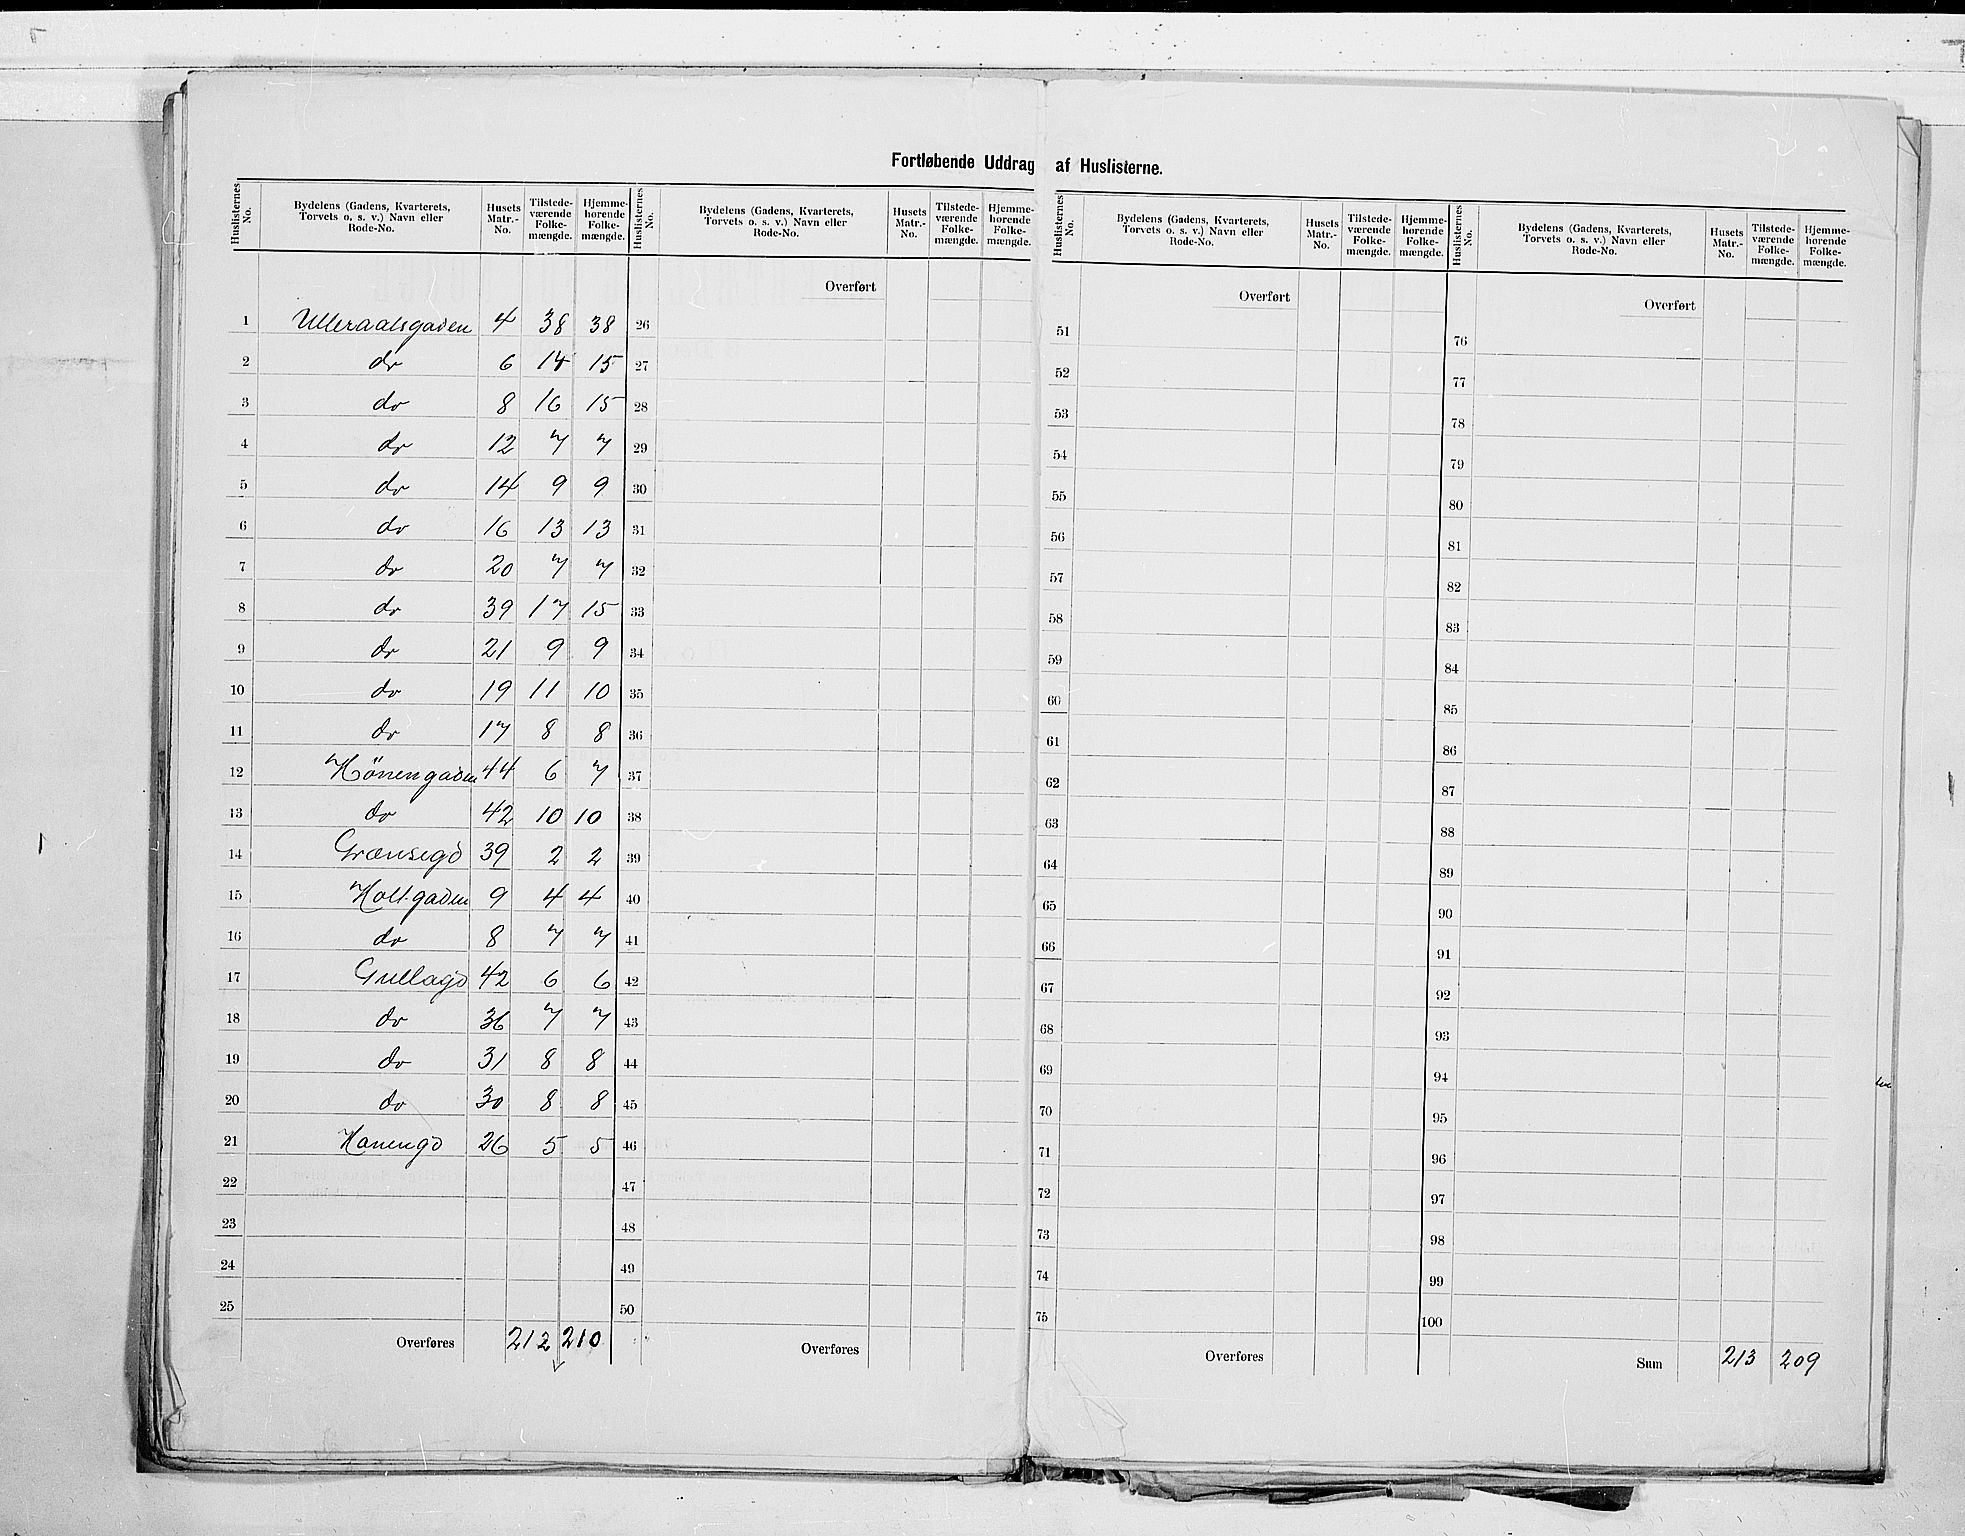 Fortløbende Uddrag af Huslisterne.
Huslisternes No. | Bydelens (Gadens, Kvarterets, Torvets o. s. v.) Navn eller Rode-No. | Husets Matr.-No. | Tilstedeværende Folkemængde. | Hjemmehørende Folkemængde.
Huslisternes No. | Bydelens (Gadens, Kvarterets, Torvets o. s. v.) Navn eller Rode-No. | Husets Matr.-No. | Tilstedeværende Folkemængde. | Hjemmehørende Folkemængde.
Overført
1 Ulleraalsgaden 4 38 38
2 do 6 14 15
3 do 8 16 15
4 do 12 7 7
5 do 14 9 9
6 do 16 13 13
7 do 20 7 7
8 do 39 17 15
9 do 21 9 9
10 do 19 11 10
11 do 17 8 8
12 Hönengaden 44 6 7
13 do 42 10 10
14 Grænsegd 39 2 2
15 Holtgaden 9 4 4
16 do 8 7 7
17 Gullagd 42 6 6
18 do 36 7 7
19 do 31 8 8
20 do 30 8 8
21 Hanengd 26 5 5
22
23
24
25
Overføres 212 210
26
27
28
29
30
31
32
33
34
35
36
37
38
39
40
41
42
43
44
45
46
47
48
49
50
Overføres
Huslisternes No. | Bydelens (Gadens, Kvarterets, Torvets o. s. v.) Navn eller Rode-No. | Husets Matr.-No. | Tilstedeværende Folkemængde. | Hjemmehørende Folkemængde.
Overført
51
52
53
54
55
56
57
58
59
60
61
62
63
64
65
66
67
68
69
70
71
72
73
74
75
Overføres
Huslisternes No. | Bydelens (Gadens, Kvarterets, Torvets o. s. v.) Navn eller Rode-No. | Husets Matr.-No. | Tilstedeværende Folkemængde. | Hjemmehørende Folkemængde.
Overført
76
77
78
79
80
81
82
83
84
85
86
87
88
89
90
91
92
93
94
95
96
97
98
99
100
Sum 213 209